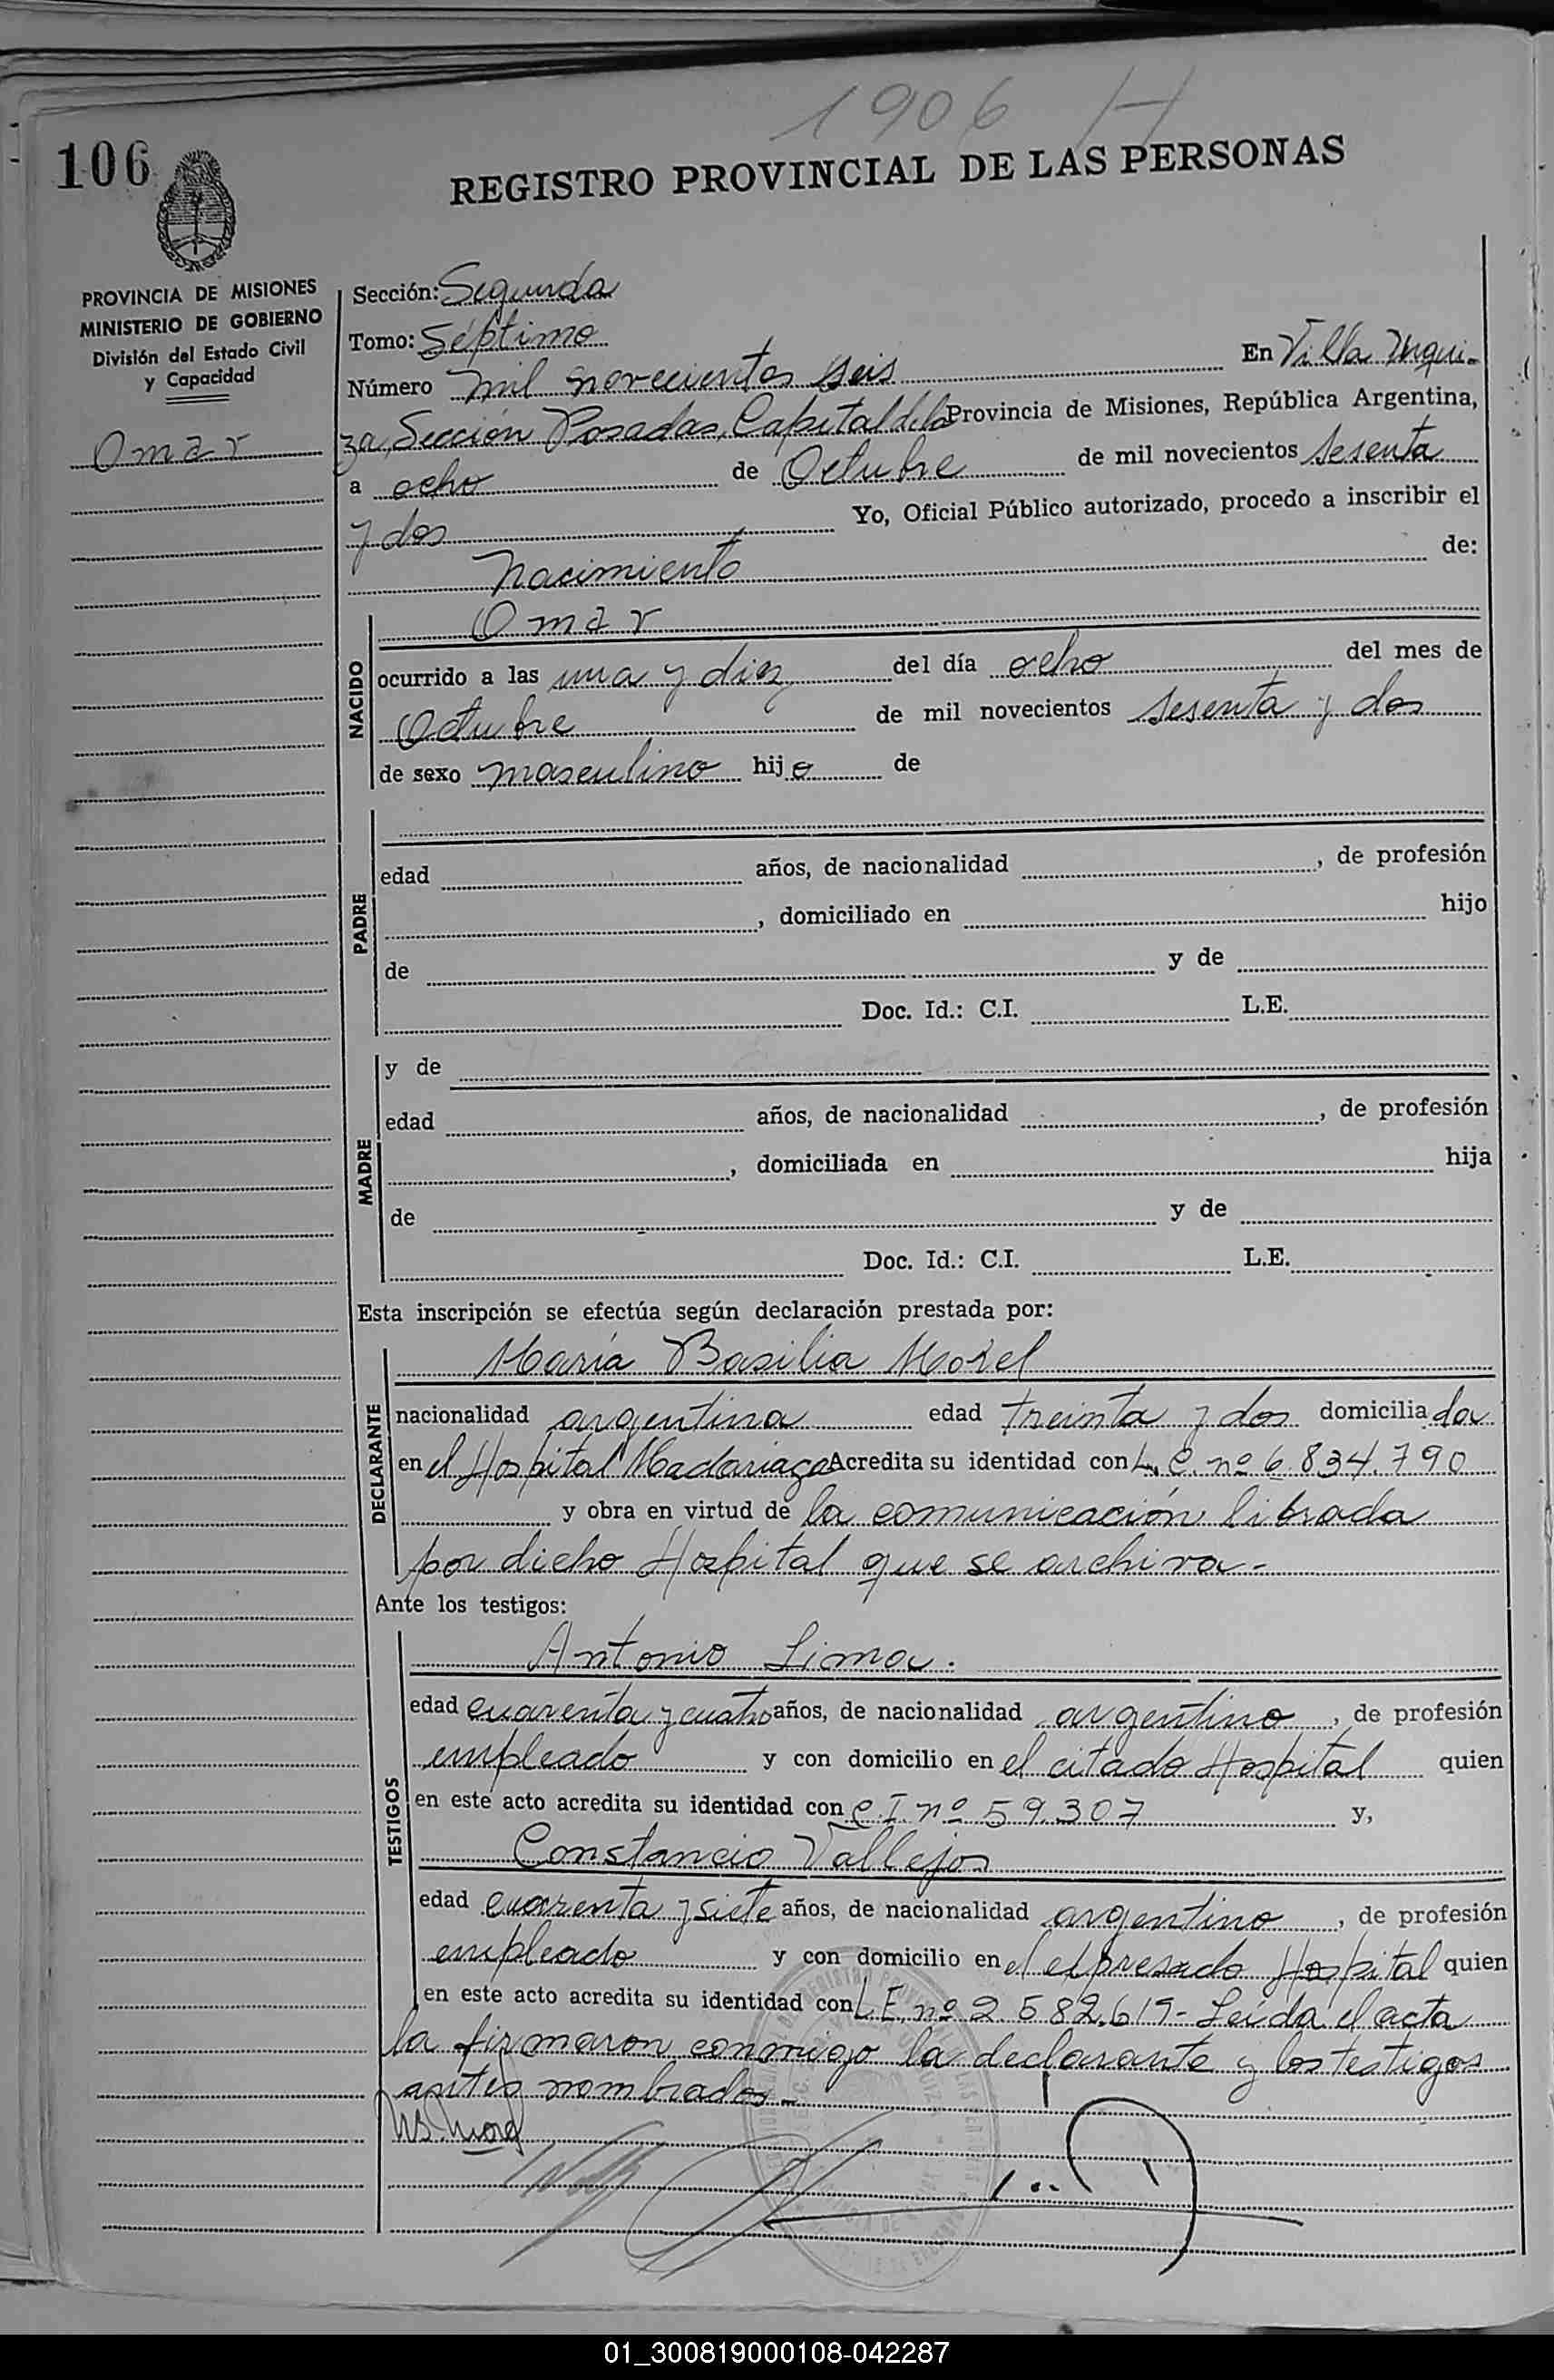 1906 H
106
REGISTRO PROVINCIAL DE LAS PERSONAS
PROVINCIA DE MISIONES
MINISTERIO DE GOBIERNO
División del Estado Civil
y Capacidad
Omar
Sección: Segunda
Tomo: Séptimo
Número mil novecientos seis En Villa Urqui-
za, Sección Posadas, Capital de la Provincia de Misiones, República Argentina,
a ocho de Octubre de mil novecientos sesenta
y dos Yo, Oficial Público autorizado, procedo a inscribir el
Nacimiento de:
NACIDO
Omar
ocurrido a las una y diez del día ocho del mes de
Octubre de mil novecientos sesenta y dos
de sexo masculino hijo de
PADRE
edad años, de nacionalidad , de profesión
, domiciliado en hijo
de y de
Doc. Id.: C.I. L.E.
MADRE
y de
edad años, de nacionalidad , de profesión
, domiciliada en hija
de y de
Doc. Id.: C.I. L.E.
Esta inscripción se efectúa según declaración prestada por:
DECLARANTE
María Basilia Morel
nacionalidad argentina edad treinta y dos domiciliada
en el Hospital Madariaga Acredita su identidad con L.C. nº 6.834.790
y obra en virtud de la comunicación librada
por dicho Hospital que se archiva.-
Ante los testigos:
TESTIGOS
Antonio Lima.
edad cuarenta y cuatro años, de nacionalidad argentino, de profesión
empleado y con domicilio en el citado Hospital quien
en este acto acredita su identidad con C.I. nº 59.307 y,
Constancio Vallejos
edad cuarenta y siete años, de nacionalidad argentino, de profesión
empleado y con domicilio en el expresado Hospital quien
en este acto acredita su identidad con L.E. nº 2.582.619- Leída el acta
la firmaron conmigo la declarante y los testigos
antes nombrados.-
01_300819000108-042287